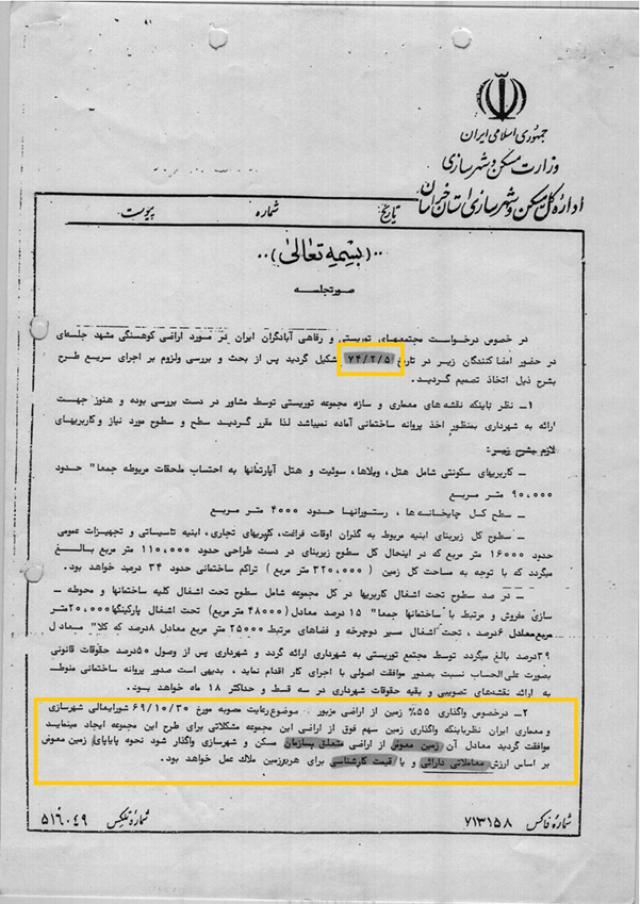 جمهوری اسلامی ایران
وزارت مسکن و شهرسازی
اداره کل مسکن و شهرسازی استان خراسان
تاریخ شماره پیوست
..(بسمه تعالی)..
صورتجلسه
در خصوص درخواست مجتمعهای توریستی و رفاهی آبادگران ایران در مورد اراضی کوهسنگی مشهد جلسه‌ای
در حضور امضا کنندگان زیر در تاریخ ۷۴/۲/۵ تشکیل گردید پس از بحث و بررسی ولزوم بر اجرای سریع طرح
بشرح ذیل اتخاذ تصمیم گردید.
۱ــ نظر باینکه نقشه های معماری و سازه مجموعه توریستی توسط مشاور در دست بررسی بوده و هنوز جهت
ارائه به شهرداری بمنظور اخذ پروانه ساختمانی آماده نمیباشد لذا مقرر گردید سطح و سطوح مورد نیاز و کاربریهای
لازم بشرح زیر:
ــ کاربریهای سکونتی شامل هتل، ویلاها، سوئیت و هتل آپارتمانها به احتساب ملحقات مربوطه جمعا" حدود
۹۰,۰۰۰ متر مربع
ــ سطح کل چایخانه‌ها ، رستورانها حدود ۴۰۰۰ متر مربع
ــ سطوح کل زیربنای ابنیه مربوط به گذران اوقات فراغت، کاربریهای تجاری، ابنیه تاسیساتی و تجهیزات عمومی
حدود ۱۶۰۰۰ متر مربع که در اینحال کل سطوح زیربنای در دست طراحی حدود ۱۱۰,۰۰۰ متر مربع بالغ
میگردد که با توجه به مساحت کل زمین ( ۳۲۰,۰۰۰ متر مربع ) تراکم ساختمانی حدود ۳۴ درصد خواهد بود.
ــ در صد سطوح تحت اشغال کاربریها در کل مجموعه شامل سطوح تحت اشغال کلیه ساختمانها و محوطه ــ
سازی مفروش و مرتبط با ساختمانها جمعا" ۱۵ درصد معادل (۴۸۰۰۰ متر مربع) تحت اشغال پارکینگها ۲۰,۰۰۰متر
مربع‌معادل ۶درصد ، تحت اشغال مسیر دوچرخه و فضاهای مرتبط ۲۵۰۰۰ متر مربع معادل ۸درصد که کلا" معادل
۳۹درصد بالغ میگردد توسط مجتمع توریستی به شهرداری ارائه گردد و شهرداری پس از وصول ۵۰درصد حقوقات قانونی
بصورت علی‌الحساب نسبت بصدور موافقت اصولی با اجرای کار اقدام نماید ، بدیهی است صدور پروانه ساختمانی منوط
به ارائه نقشه‌های تصویبی و بقیه حقوقات شهرداری در سه قسط و حداکثر ۱۸ ماه خواهد بود.
۲ــ درخصوص واگذاری ۵۵٪ زمین از اراضی مزبور موضوع رعایت مصوبه مورخ ۶۹/۱۰/۳۰ شورایعالی شهرسازی
و معماری ایران نظرباینکه واگذاری زمین سهم فوق از اراضی این مجموعه مشکلاتی برای طرح این مجموعه ایجاد مینماید
موافقت گردید معادل آن زمین معوض از اراضی متعلق بسازمان مسکن و شهرسازی واگذار شود نحوه پایاپای زمین معوض
بر اساس ارزش معاملاتی دارائی و یا قیمت کارشناسی برای هردوزمین ملاک عمل خواهد بود.
شماره فاکس ۷۱۳۱۵۸ شماره تلکس ۵۱۶۰۴۹